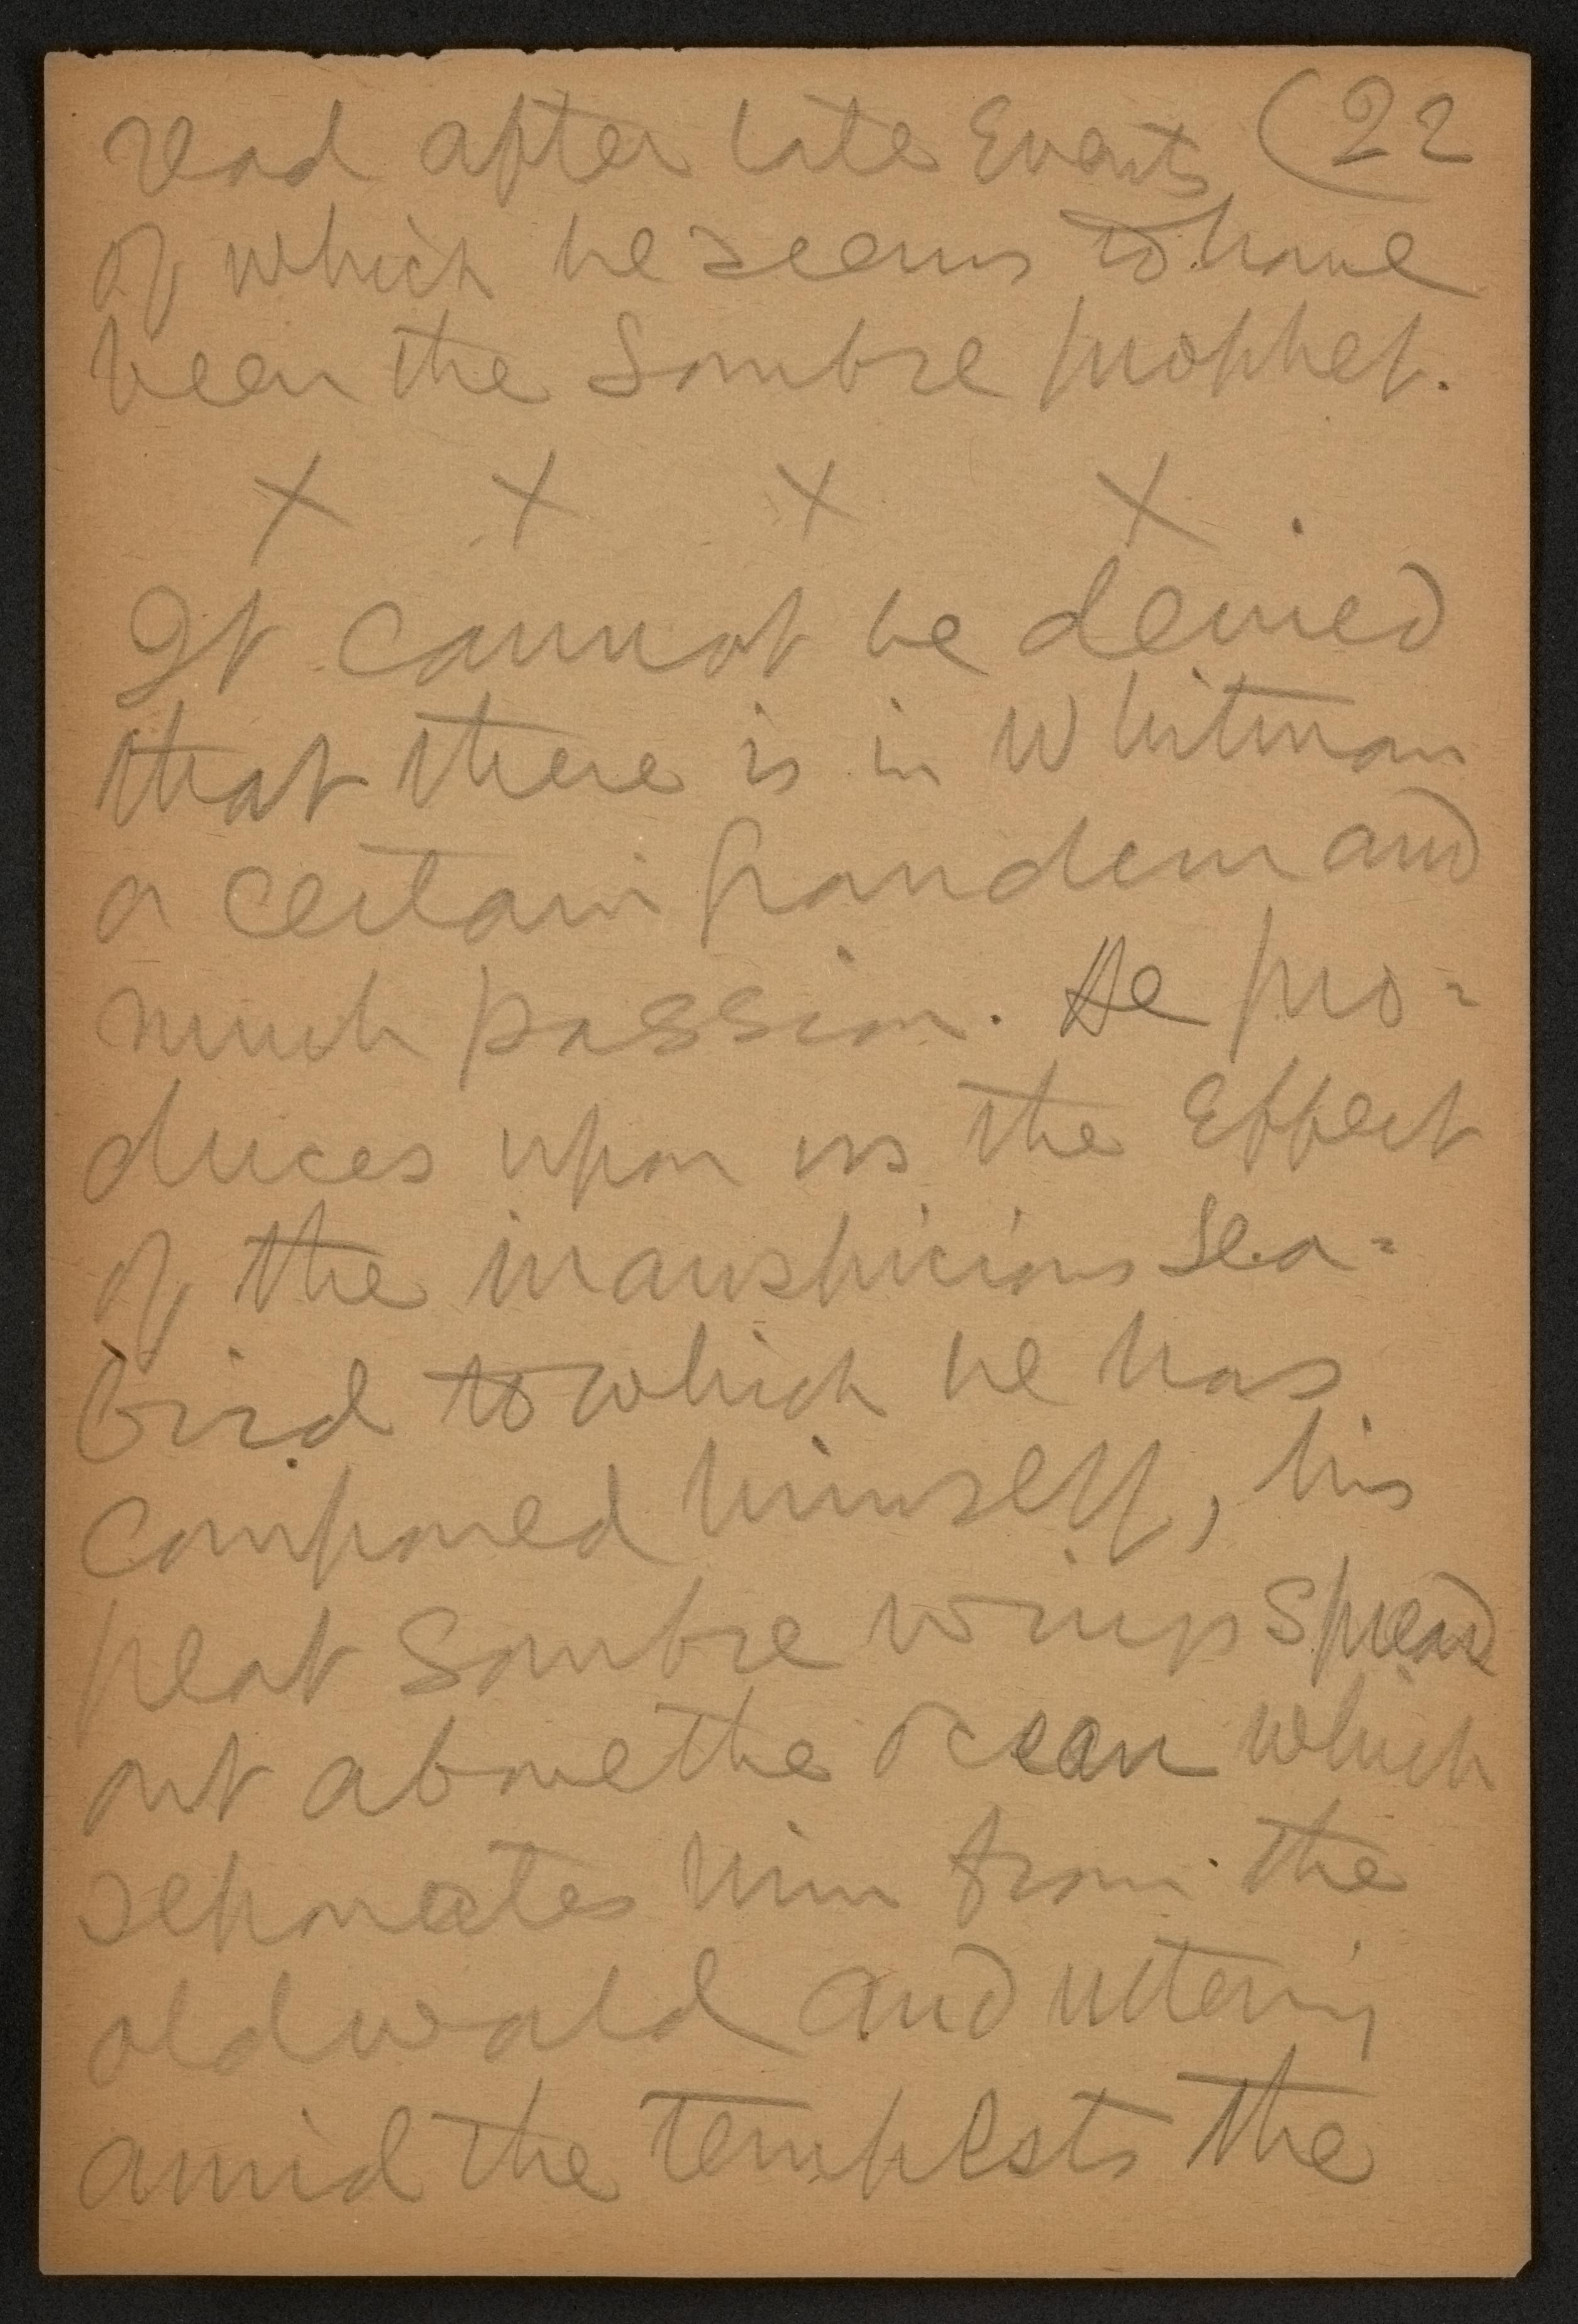 read after late Events (22
of which he seems to have
been the Sombre prophet.
x x x x
It cannot be denied
that there is in Whitman
a certain grandeur and
much passion. He pro=
duces upon us the Effect
of the inauspicious sea=
bird to which he has
compared himself, his
great Sombre wings spread
out above the ocean which
separates him from the
old world and uttering
amid the tempests the